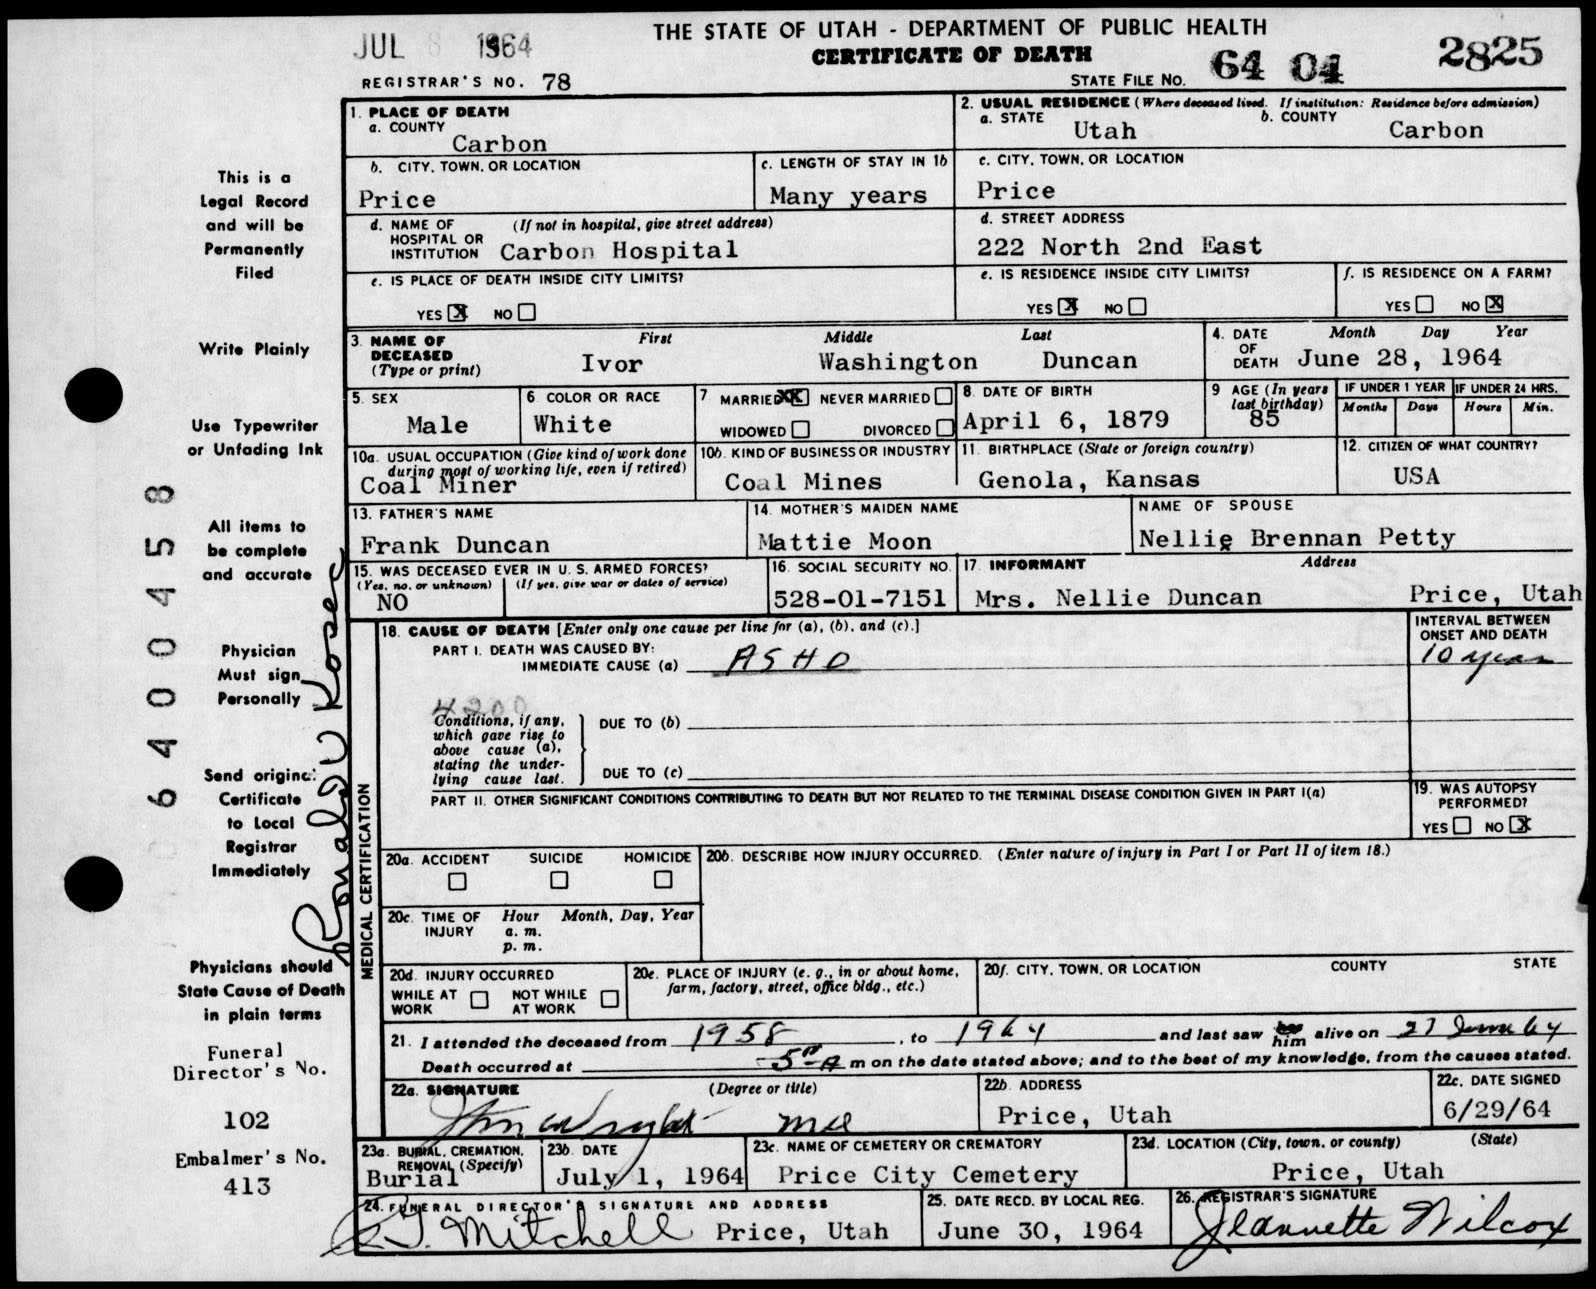 THE STATE OF UTAH - DEPARTMENT OF PUBLIC HEALTH
CERTIFICATE OF DEATH
JUL 8 1964
REGISTRAR'S NO. 78
STATE FILE NO. 64 04 2825
This is a
Legal Record
and will be
Permanently
Filed
Write Plainly
Use Typewriter
or Unfading Ink
All items to
be complete
and accurate
Physician
Must sign
Personally
Send original
Certificate
to Local
Registrar
Immediately
Physicians should
State Cause of Death
in plain terms
Funeral
Director's No.
102
Embalmer's No.
413
6400458
1. PLACE OF DEATH
a. COUNTY
Carbon
2. USUAL RESIDENCE (Where deceased lived. If institution: Residence before admission)
a. STATE
Utah
b. COUNTY
Carbon
b. CITY, TOWN, OR LOCATION
Price
c. LENGTH OF STAY IN 1b
Many years
c. CITY, TOWN, OR LOCATION
Price
d. NAME OF HOSPITAL OR INSTITUTION (If not in hospital, give street address)
Carbon Hospital
d. STREET ADDRESS
222 North 2nd East
e. IS PLACE OF DEATH INSIDE CITY LIMITS?
YES X NO
e. IS RESIDENCE INSIDE CITY LIMITS?
YES X NO
f. IS RESIDENCE ON A FARM?
YES NO X
3. NAME OF DECEASED (Type or print)
First Middle Last
Ivor Washington Duncan
4. DATE OF DEATH
Month Day Year
June 28, 1964
5. SEX
Male
6 COLOR OR RACE
White
7 MARRIED XX NEVER MARRIED
WIDOWED DIVORCED
8. DATE OF BIRTH
April 6, 1879
9 AGE (In years last birthday)
85
IF UNDER 1 YEAR
Months Days
IF UNDER 24 HRS.
Hours Min.
10a. USUAL OCCUPATION (Give kind of work done during most of working life, even if retired)
Coal Miner
10b. KIND OF BUSINESS OR INDUSTRY
Coal Mines
11. BIRTHPLACE (State or foreign country)
Genola, Kansas
12. CITIZEN OF WHAT COUNTRY?
USA
13. FATHER'S NAME
Frank Duncan
14. MOTHER'S MAIDEN NAME
Mattie Moon
NAME OF SPOUSE
Nellie Brennan Petty
15. WAS DECEASED EVER IN U. S. ARMED FORCES?
(Yes, no, or unknown) (If yes, give war or dates of service)
NO
16. SOCIAL SECURITY NO.
528-01-7151
17. INFORMANT Address
Mrs. Nellie Duncan Price, Utah
MEDICAL CERTIFICATION
18. CAUSE OF DEATH [Enter only one cause per line for (a), (b), and (c).]
PART I. DEATH WAS CAUSED BY:
IMMEDIATE CAUSE (a) ASHD
INTERVAL BETWEEN ONSET AND DEATH
10 years
4200
Conditions, if any, which gave rise to above cause (a), stating the underlying cause last.
DUE TO (b)
DUE TO (c)
PART II. OTHER SIGNIFICANT CONDITIONS CONTRIBUTING TO DEATH BUT NOT RELATED TO THE TERMINAL DISEASE CONDITION GIVEN IN PART I(a)
19. WAS AUTOPSY PERFORMED?
YES NO X
20a. ACCIDENT SUICIDE HOMICIDE
20b. DESCRIBE HOW INJURY OCCURRED. (Enter nature of injury in Part I or Part II of item 18.)
20c. TIME OF INJURY Hour Month, Day, Year
a. m.
p. m.
20d. INJURY OCCURRED
WHILE AT WORK NOT WHILE AT WORK
20e. PLACE OF INJURY (e. g., in or about home, farm, factory, street, office bldg., etc.)
20f. CITY, TOWN, OR LOCATION COUNTY STATE
21. I attended the deceased from 1958, to 1964 and last saw him alive on 27 June 64
Death occurred at 5 A m on the date stated above; and to the best of my knowledge, from the causes stated.
22a. SIGNATURE (Degree or title)
22b. ADDRESS
Price, Utah
22c. DATE SIGNED
6/29/64
23a. BURIAL, CREMATION, REMOVAL (Specify)
Burial
23b. DATE
July 1, 1964
23c. NAME OF CEMETERY OR CREMATORY
Price City Cemetery
23d. LOCATION (City, town, or county) (State)
Price, Utah
24. FUNERAL DIRECTOR'S SIGNATURE AND ADDRESS
Mitchell Price, Utah
25. DATE RECD. BY LOCAL REG.
June 30, 1964
26. REGISTRAR'S SIGNATURE
Jeannette Wilcox